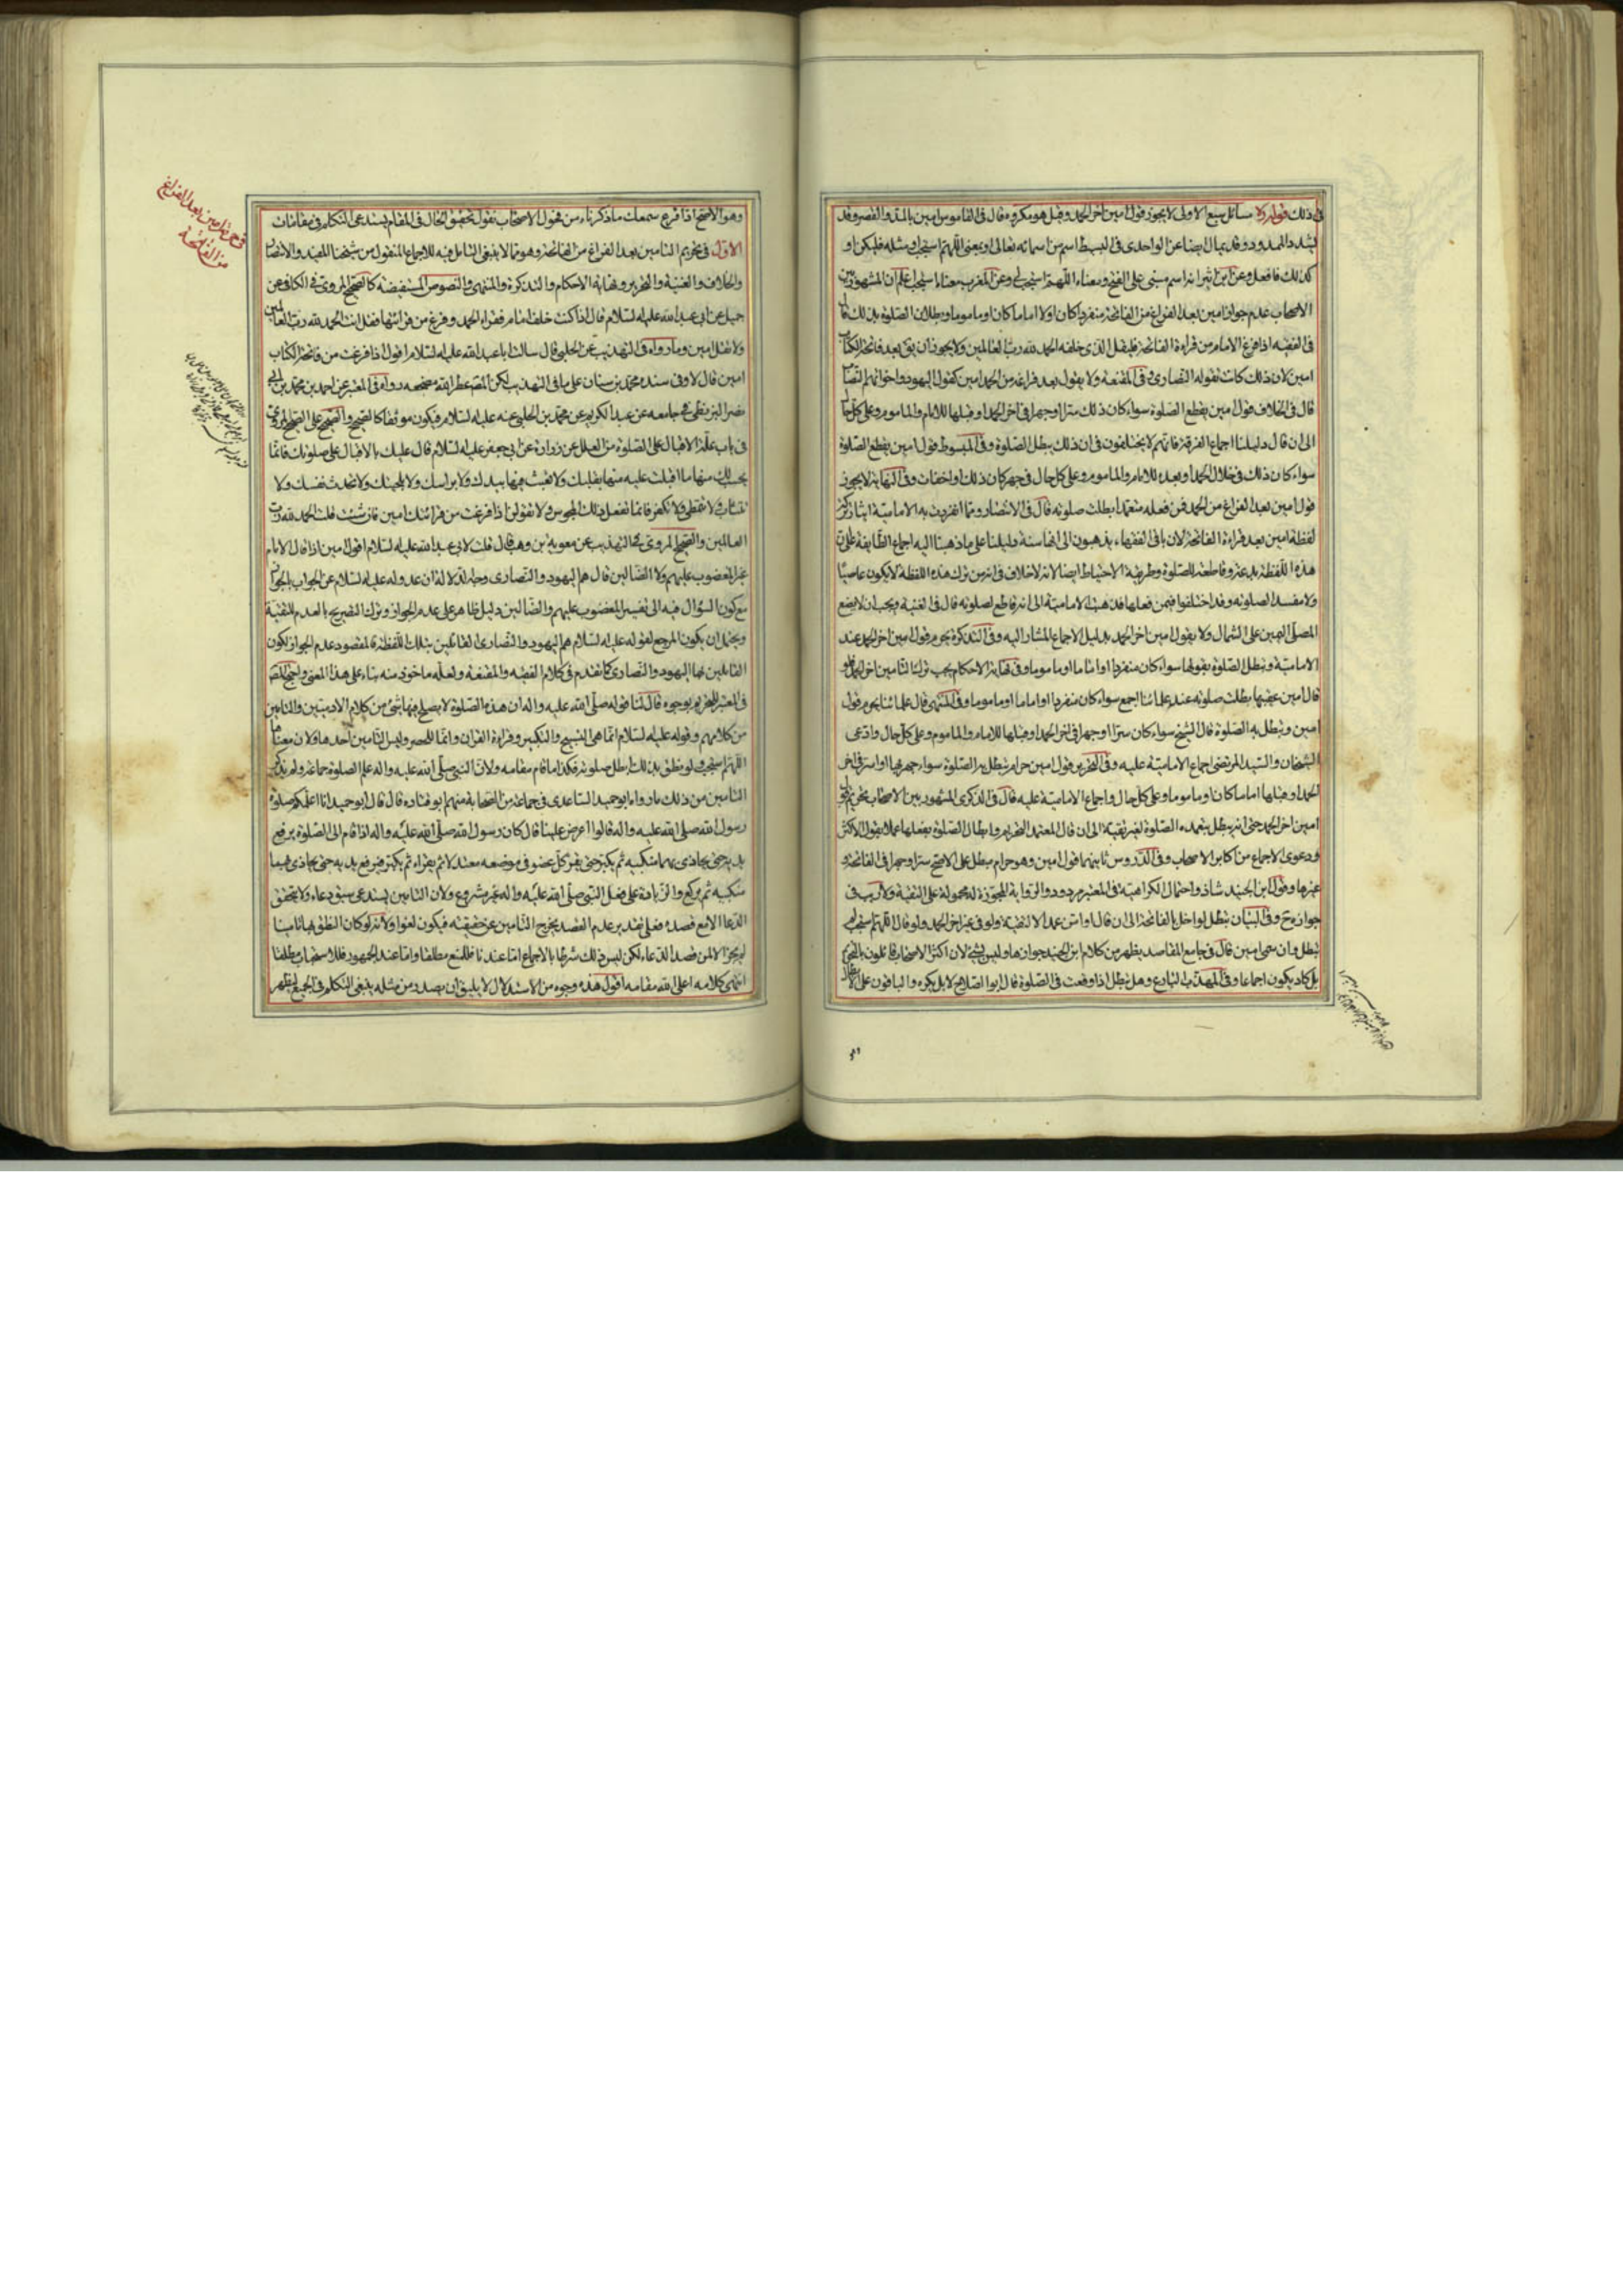 في ذلك قوله ره مسائل سبع الاولى لا يجوز قول امين اخر الحمد وقيل هو مكروه قال في القاموس امين بالمد والقصر وقد
يشدد الممدود وقد يمال ايضا عن الواحدى في البسيط اسم من اسمائه تعالى او بمعنى اللهم استجب او مثله فليكن او
كذلك فافعل وعن ابن اثير انه اسم مبنى على الفتح ومعناه اللهم استجب لي وعن المغرب معناه استجب اعلم ان المشهور بين
الاصحاب عدم جواز امين بعد الفراغ من الفاتحة منفردا كان او لا اماما كان او ماموما وبطلان الصلوة بذلك قال
في الفقيه اذا فرغ الامام من قراءة الفاتحة فليقل الذى خلفه الحمد لله رب العالمين ولا يجوز ان يق بعد فاتحة الكتاب
امين لان ذلك كانت تقوله النصارى وفى المقنعة ولا يقول بعد فراغه من الحمد امين كقول اليهود واخوانهم النصاب
قال في الخلاف قول امين يقطع الصلوة سواء كان ذلك سرا او جهرا في اخر الحمد او قبلها للامام والماموم وعلى كل حال
الى ان قال دليلنا اجماع الفرقة فانهم لا يختلفون في ان ذلك يبطل الصلوة وفى المبسوط قول امين يقطع الصلوة
سواء كان ذلك في خلال الحمد او بعده للامام والماموم وعلى كل حال في جهر كان ذلك او اخفات وفى النهاية لا يجوز
قول امين بعد الفراغ من الحمد فمن فعله متعمدا بطلت صلوته قال في الانتصار ومما انفردت به الامامية ايثار ترك
لفظة امين بعد قراءة الفاتحة لان باقى الفقهاء يذهبون الى انها سنة دليلنا على ما ذهبنا اليه اجماع الطايفة على ان
هذه اللفظة بدعة وقاطعة للصلوة وطريقة الاحتياط ايضا لانه لا خلاف في انه من ترك هذه اللفظة لا يكون عاصيا
ولا مفسدا لصلوته وقد اختلفوا فيمن فعلها فذهبت الامامية الى انه قاطع لصلوته قال في الغنية ويجب ان لا يضع
المصلى اليمين على الشمال ولا يقول امين اخر الحمد بدليل الاجماع المشار اليه وفى التذكرة يحرم قول امين اخر الحمد عند
الامامية وتبطل الصلوة بقولها سواء كان منفردا او اماما او ماموما وفى نهاية الاحكام يجب ترك التامين اخر الحمد فلو
قال امين عقيبها بطلت صلوته عند علمائنا اجمع سواء كان منفردا او اماما او ماموما وفى المنتهى قال علمائنا يحرم قول
امين وتبطل به الصلوة قال الشيخ سواء كان سرا او جهرا في اخر الحمد او قبلها للامام والماموم وعلى كل حال وادعى
الشيخان والسيد المرتضى اجماع الامامية عليه وفى التحرير قول امين حرام تبطل به الصلوة سواء جهر بها او اسر في اخر
الحمد او قبلها اماما كان او ماموما وعلى كل حال واجماع الامامية عليه قال في الذكرى المشهور بين الاصحاب تحريم قول
امين اخر الحمد حتى انه يبطل بتعمده الصلوة لغير تقية الى ان قال المعتمد التحريم وابطال الصلوة بفعلها عملا بقول الاكثر
ودعوى الاجماع من اكابر الاصحاب وفى الدروس ثانيها قول امين وهو حرام مبطل على الاصح سرا وجهرا في الفاتحة و
غيرها وقول ابن الجنيد شاذ واحتمال الكراهية في المعتبر مردود والرواية المجوزة له محمولة على التقية ولا ريب في
جوازه ح وفى البيان تبطل لواخل بالفاتحة الى ان قال او امن عمدا لا لتقية ولو في غير اخر الحمد ولو قال اللهم استجب لم
تبطل وان سمى امين قال في جامع المقاصد يظهر من كلام ابن الجنيد جوازها وليس بشئ لان اكثر الاصحاب قائلون بالتحريم
بل كاد يكون اجماعا وفى المهذب البارع وهل تبطل اذا وقعت في الصلوة قال ابو الصلاح لا بل يكره والباقون على الابطال
وهو الاصح اذا قرع سمعك ما ذكرناه من فحول الاصحاب نقول تحقيق الحال في المقام يستدعى التكلم في مقامات
الاول في تحريم التامين بعد الفراغ من الفاتحة وهو مما لا ينبغى التامل فيه للاجماع المنقول من شيخنا المفيد والانتصار
والخلاف والغنية والتحرير ونهاية الاحكام والتذكرة والمنتهى والنصوص المستفيضة كالصحيح المروى في الكافى عن
جميل عن ابى عبد الله عليه السلام قال اذا كنت خلف امام فقراء الحمد وفرغ من قرائتها فقل انت الحمد لله رب العالمين
ولا تقل امين وما رواه في التهذيب عن الحلبى قال سالت ابا عبد الله عليه السلام اقول اذا فرغت من فاتحة الكتاب
امين قال لا وفى سنده محمد بن سنان على ما في التهذيب لكن المص عطر الله مضجعه رواه في المعتبر عن احمد بن محمد بن ابى
نصر البزنطى في جامعه عن عبد الكريم عن محمد بن الحلبى عنه عليه السلام فيكون موثقا كالصحيح والصحيح على الصحيح المروى
في باب علة الاقبال على الصلوة من العلل عن زرارة عن ابى جعفر عليه السلام قال عليك بالاقبال على صلوتك فانما
يحسب لك منها ما اقبلت عليه منها بقلبك ولا تعبث فيها بيدك ولا براسك ولا بلحيتك ولا تحدث نفسك ولا
تتثاءب ولا تتمطى ولا تكفر فانما تفعل ذلك المجوس ولا تقولن اذا فرغت من قرائتك امين فان شئت قلت الحمد لله رب
العالمين والصحيح المروى في التهذيب عن معوية بن وهب قال قلت لابى عبد الله عليه السلام اقول امين اذا قال الامام
غير المغضوب عليهم ولا الضالين قال هم اليهود والنصارى وجه الدلالة ان عدوله عليه السلام عن الجواب بالجواز
مع كون السؤال فيه الى تفسير المغضوب عليهم والضالين دليل ظاهر على عدم الجواز وترك التصريح بالعدم للتقية
ويحتمل ان يكون المرجع لقوله عليه السلام هم اليهود والنصارى القائلين بتلك اللفظة فالمقصود عدم الجواز لكون
القائلين بها اليهود والنصارى كما تقدم في كلام الفقيه والمقنعة ولعله ماخوذ منه بناء على هذا المعنى واحتج المص
في المعتبر للتحريم بوجوه قال لنا قوله صلى الله عليه واله ان هذه الصلوة لا يصلح فيها شئ من كلام الادميين والتامين
من كلامهم وقوله عليه السلام انما هى التسبيح والتكبير وقراءة القران وانما للحصر وليس التامين احدها ولان معناها
اللهم استجب ولو نطق بذلك ابطل صلوته فكذا ما قام مقامه ولان النبى صلى الله عليه واله علم الصلوة جماعة ولم يذكر
التامين من ذلك ما رواه ابو حميد الساعدى في جماعة من الصحابة منهم ابو قتادة قال قال ابو حميد انا اعلمكم صلوة
رسول الله صلى الله عليه واله قالوا اعرض علينا قال كان رسول الله صلى الله عليه واله اذا قام الى الصلوة يرفع
يديه حتى يحاذى بهما منكبيه ثم يكبر حتى يقر كل عضو في موضعه معتدلا ثم يقراء ثم يكبر فيرفع يديه حتى يحاذى بهما
منكبيه ثم يركع والزيادة على فعل النبى صلى الله عليه واله غير مشروع ولان التامين يستدعى سبق دعاء ولا يتحقق
الدعا الا مع قصده فعلى تقدير عدم القصد يخرج التامين عن حقيقته فيكون لغوا ولانه لو كان النطق بها تامينا
لم يجز الا لمن قصد الدعاء لكن ليس ذلك شرطا بالاجماع اما عندنا فللمنع مطلقا واما عند الجمهور فللاستحباب مطلقا
انتهى كلامه اعلى الله مقامه اقول هذه وجوه من الاستدلال لا يليق ان يصدر من مثله ينبغى التكلم في الجميع ليظهر
من الفاتحة